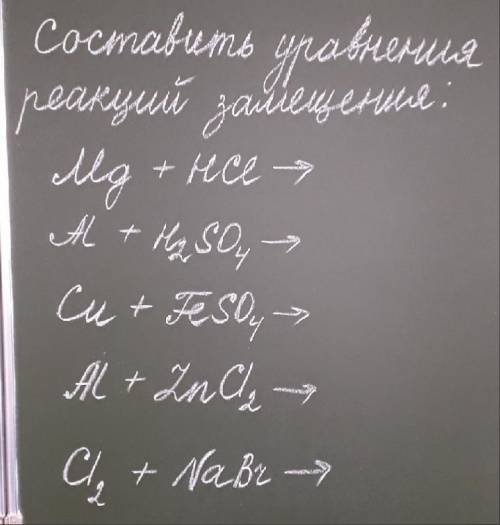 Составить уравнения
реакций замещения:
Mg + HCl →
Al + H₂SO₄ →
Cu + FeSO₄ →
Al + ZnCl₂ →
Cl₂ + NaBr →